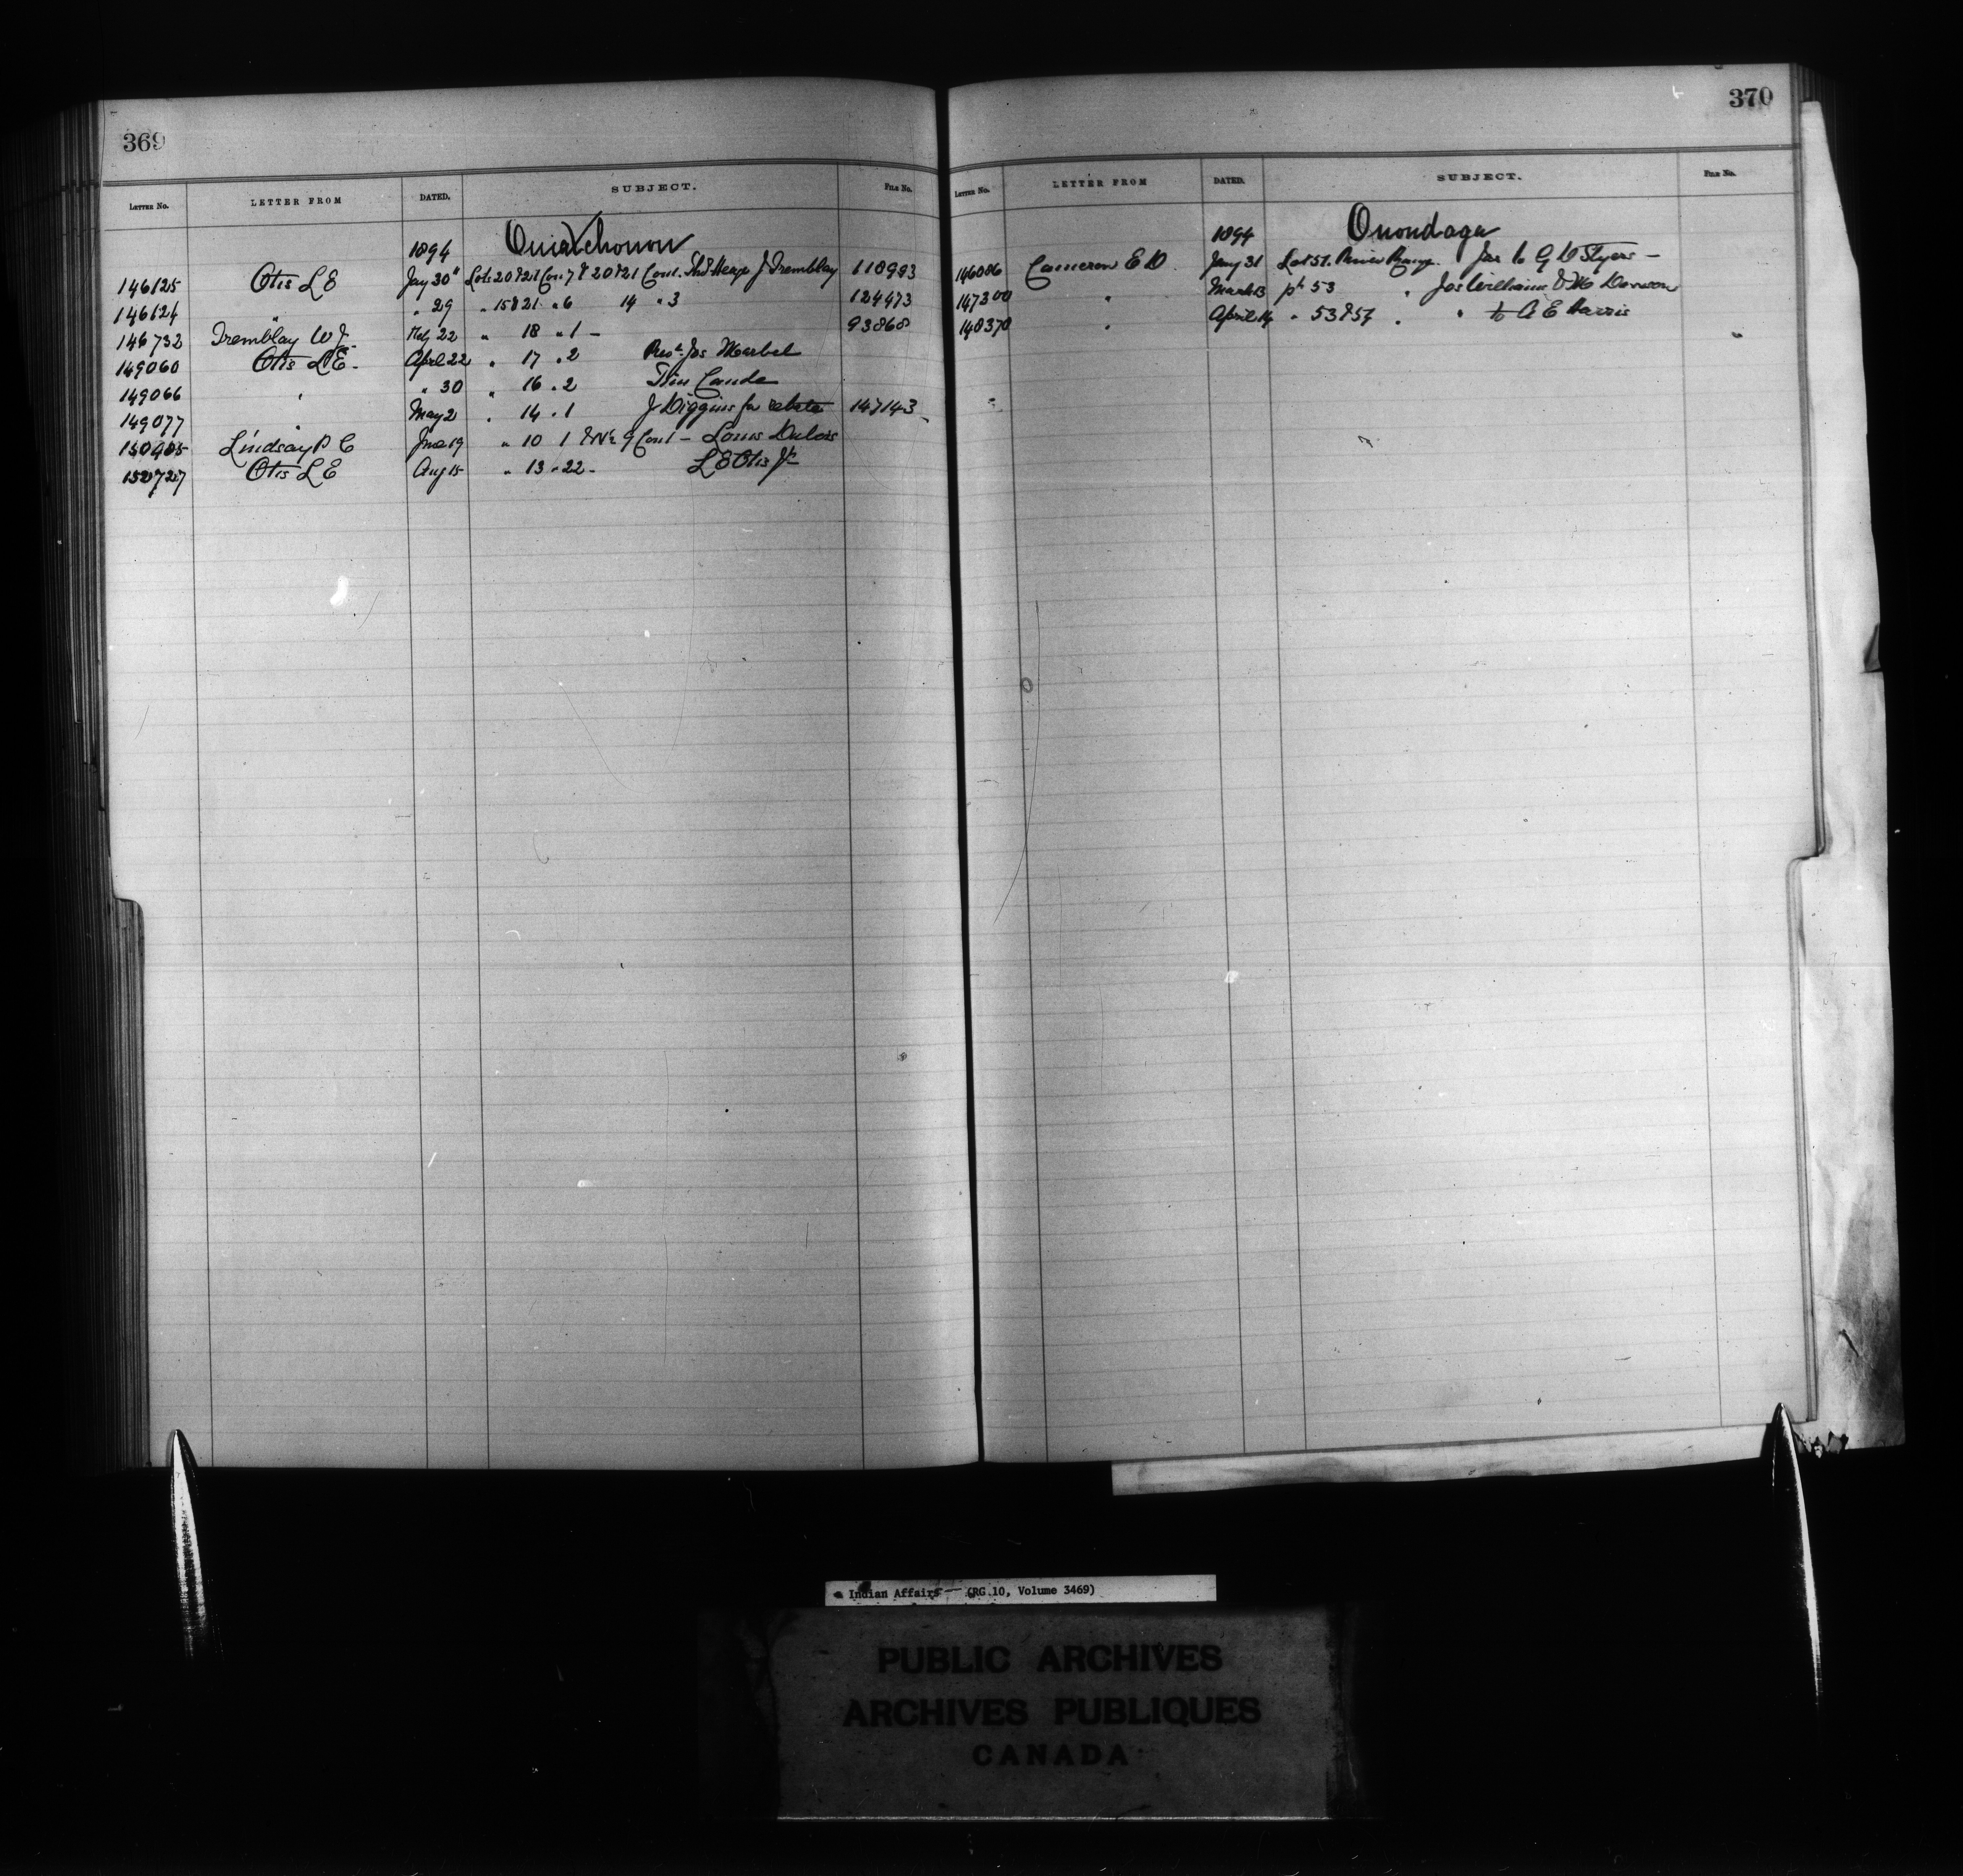 369
LETTER NO. LETTER FROM DATED. SUBJECT. FILE NO.
1894 Ouiatchouan
146125 Otis L E Jany 30 Lots 20 & 21 Con 7 & 20 & 21 Con 1. J Tremblay 110993
146124 " " 29 " 15 & 21 " 6 14 " 3 124473
146732 Tremblay W J. Feby 22 " 18 " 1 – 93868
149060 Otis L E. April 22 " 17 " 2 Jos
149066 " " 30 " 16 " 2
149077 " May 21 " 14 " 1 J Diggins for rebate 147143
Lindsay P C June 19 " 10 1 & 9 Con 1 – Louis
Otis L E Aug 15 " 13 " 22 – L E Otis Jr
370
LETTER NO. LETTER FROM DATED. SUBJECT. FILE NO.
1894 Onondaga
146086 Cameron E D. Jany 31 Lot 51. River Range. Jas to G D Styers –
147300 " March 13 pt 53 " Jos Williams
148370 " April 14 " 53 & 57 " " to A E Harris
Indian Affairs — (RG 10, Volume 3469)
PUBLIC ARCHIVES
ARCHIVES PUBLIQUES
CANADA